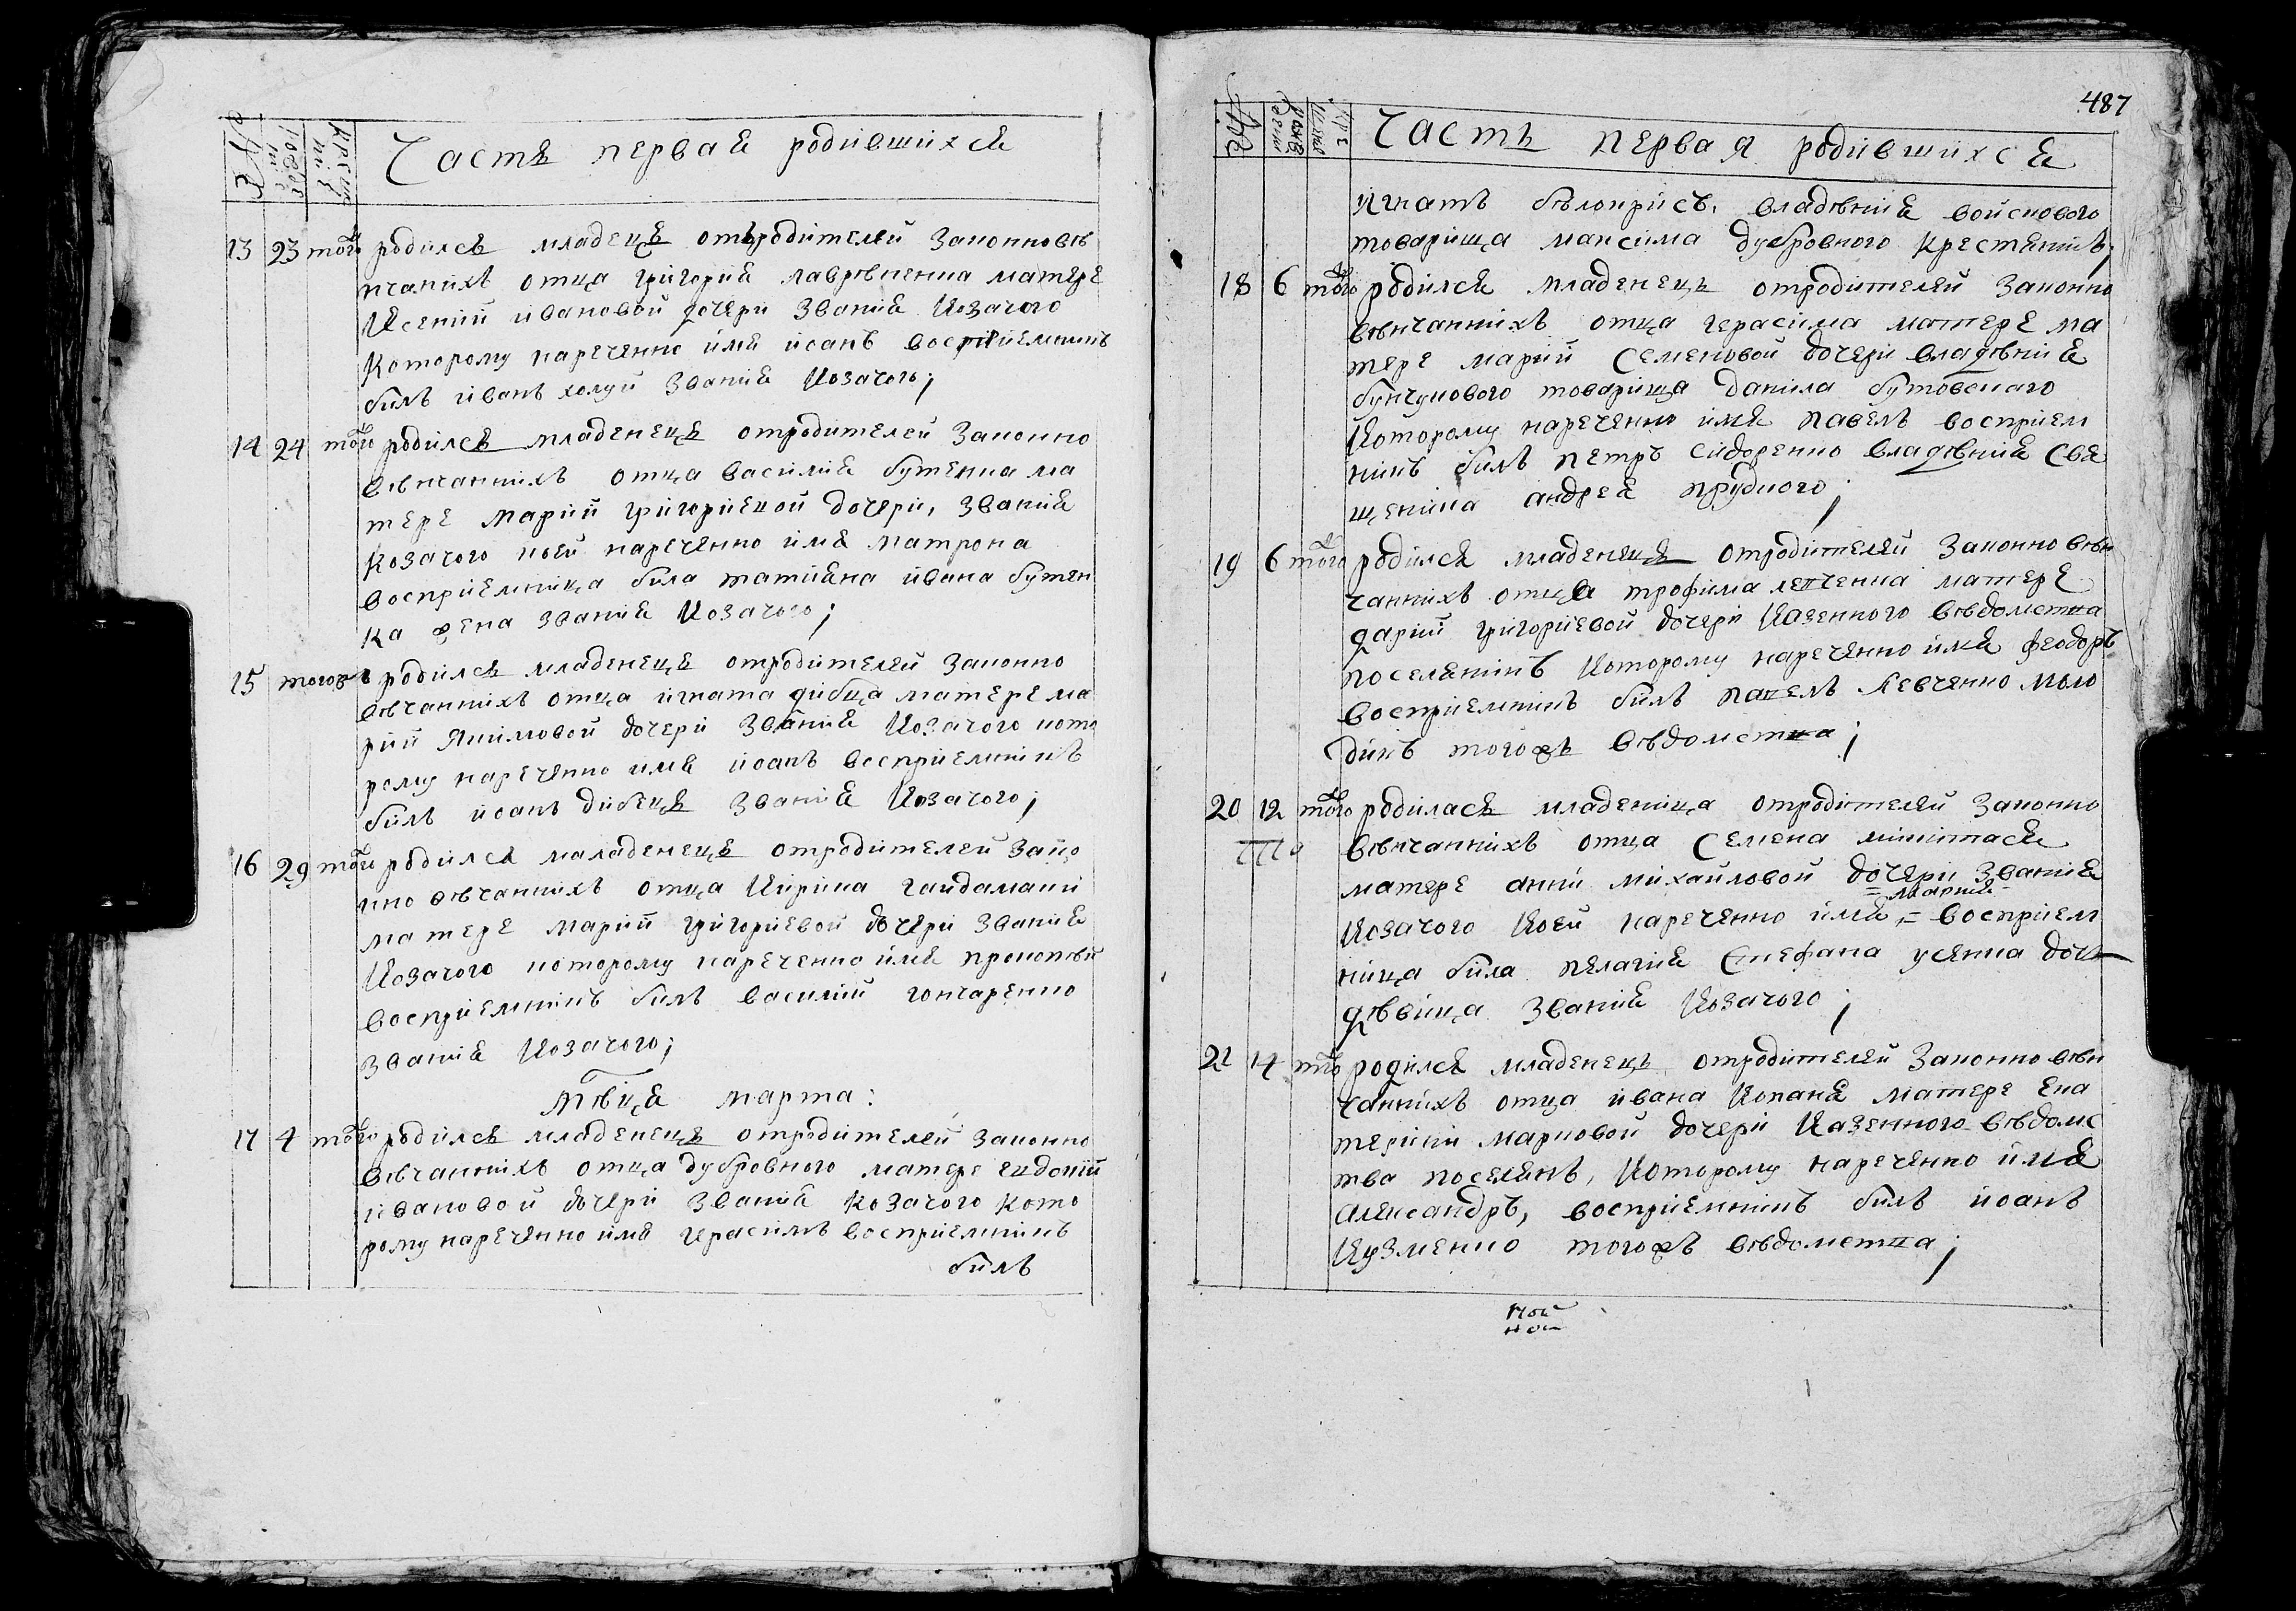 Часть первая родившихся
13 23 того родилсѧ младенецъ отъродителей законновѣ
нчаннихъ отца григория лавровненка матере
Ксении ивановой дочери звания козачого
которому нареченно имя иоанъ восприемникъ
билъ иванъ холуй звания козачого;
14 24 той родилсѧ младенецъ отродителей законно
вѣнчаннихъ отца василия бутенка ма
тере марий григориевой дочери, звания
козачого коей нареченно имя матрона
восприемница била татияна ивана бутен
ка жена звания козачого;
15 тогожъ родилсѧ младенецъ отродителей законно
вѣчаннихъ отца игната дибца матере ма
рий якимовой дочери звания козачого кото
рому нареченно имя иоанъ восприемникъ
билъ иоанъ дибецъ звания козачого;
16 29 той родилсѧ маладенецъ отродителей зако
нно вѣчаннихъ отца кирика гайдамаки
матере марий григориевой дочери звания
козачого которому нареченно имя прокопий
восприемникъ билъ василий гончаренко
звания козачого;
Мѣсца марта:
17 4 того родилсѧ младенецъ отродителей законно
вѣчаннихъ отца дубровного матере евдокий
ивановой дочери звания козачого кото
рому нареченно имя герасимъ восприемникъ
билъ
487
Часть первая родившихся
игнатъ бѣлокрисъ, владѣния войскового
товарища максима дубровного крестянинъ;
18 6 того родилсѧ младенецъ отродителей законно
вѣнчаннихъ отца герасима матере ма
тере марий семеновой дочери владѣния
бунчукового товарища данила бутовского
которому нареченно имя павелъ восприем
никъ билъ петръ сидоренко владѣния свя
щеника андрея прудкого;
19 6 того родилсѧ младенецъ отродителей законно вѣн
чаннихъ отца трофима левченка матере
дарий григориевой дочери казенного вѣдомства
поселянинъ которому нареченно имя феодоръ
восприемникъ билъ павелъ левченко моло
дикъ тогожъ вѣдомства;
20 12 того родиласѧ младеница отродителей законно
вѣнчаннихъ отца семена микитася
матере анни михайловой дочери звания
=мария=
козачого коей нареченно имя, = восприем
ница била пелагия стефана усенка дочь
дѣвица звания козачого;
21 14 того родилсѧ младенецъ отродителей законно вѣн
чаннихъ отца ивана копаня матере ека
терини марковой дочери казенного вѣдомс
тва поселянъ, которому нареченно имя
александръ, восприемникъ билъ иоанъ
кузменко тогожъ вѣдомства;